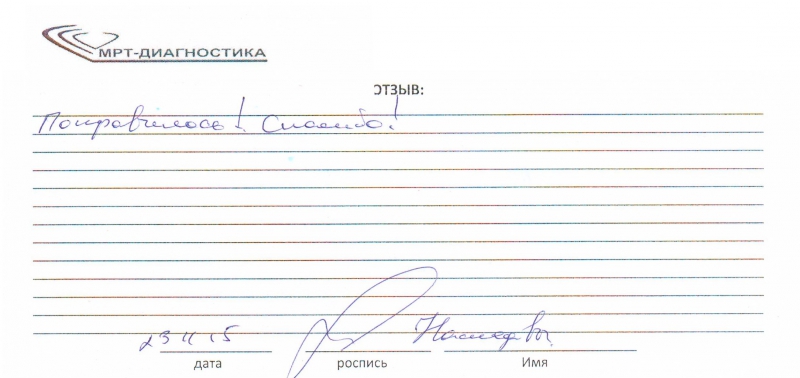 МРТ-ДИАГНОСТИКА
ОТЗЫВ:
Понравилось! Спасибо!
23 11 15
дата роспись Имя